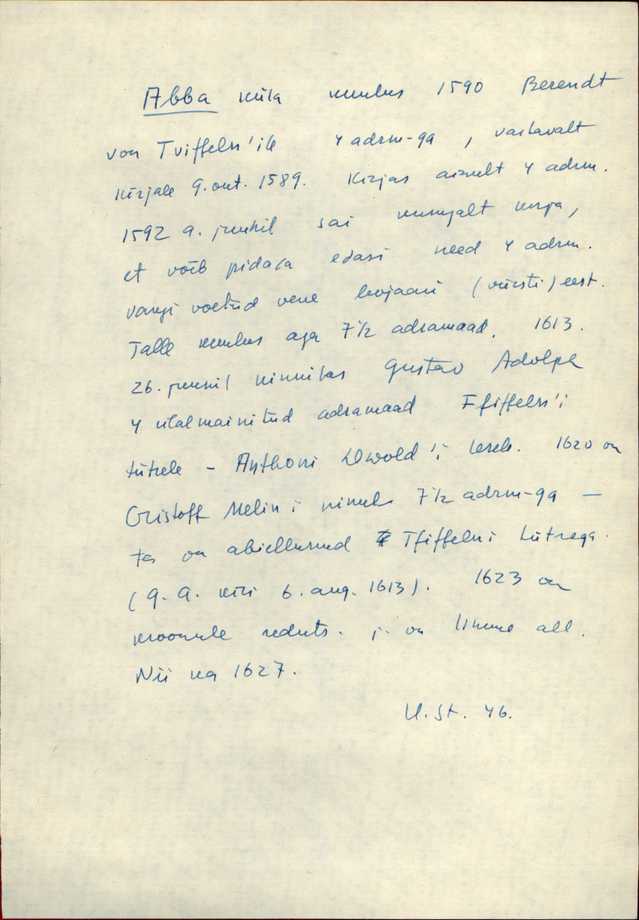 Abba küla kuulus 1590 Berendt
von Tviffeln'ile 4 adrm-ga, vastavalt
kirjale 9. okt. 1589. Kirjas ainult 4 adrm.
1592 a. juunil sai kuningalt kirja,
et võib pidada edasi need 4 adrm.
vangi võetud vene bojaari (vürsti) eest.
Talle kuulus aga 7 1/2 adramaad. 1613.
26. juunil kinnitas Gustav Adolph
4 ülalmainitud adramaad Tfiffeln'i
tütrele - Anthoni lesele. 1620 on
Cristoff Melin'i nimel 7 1/2 adrm-ga -
ta on abiellunud Tfiffelni tütrega.
(G. A. kiri 6. aug. 1613). 1623 on
kroonule reduts. j. on linna all.
Nii ka 1627.
U. St. 46.